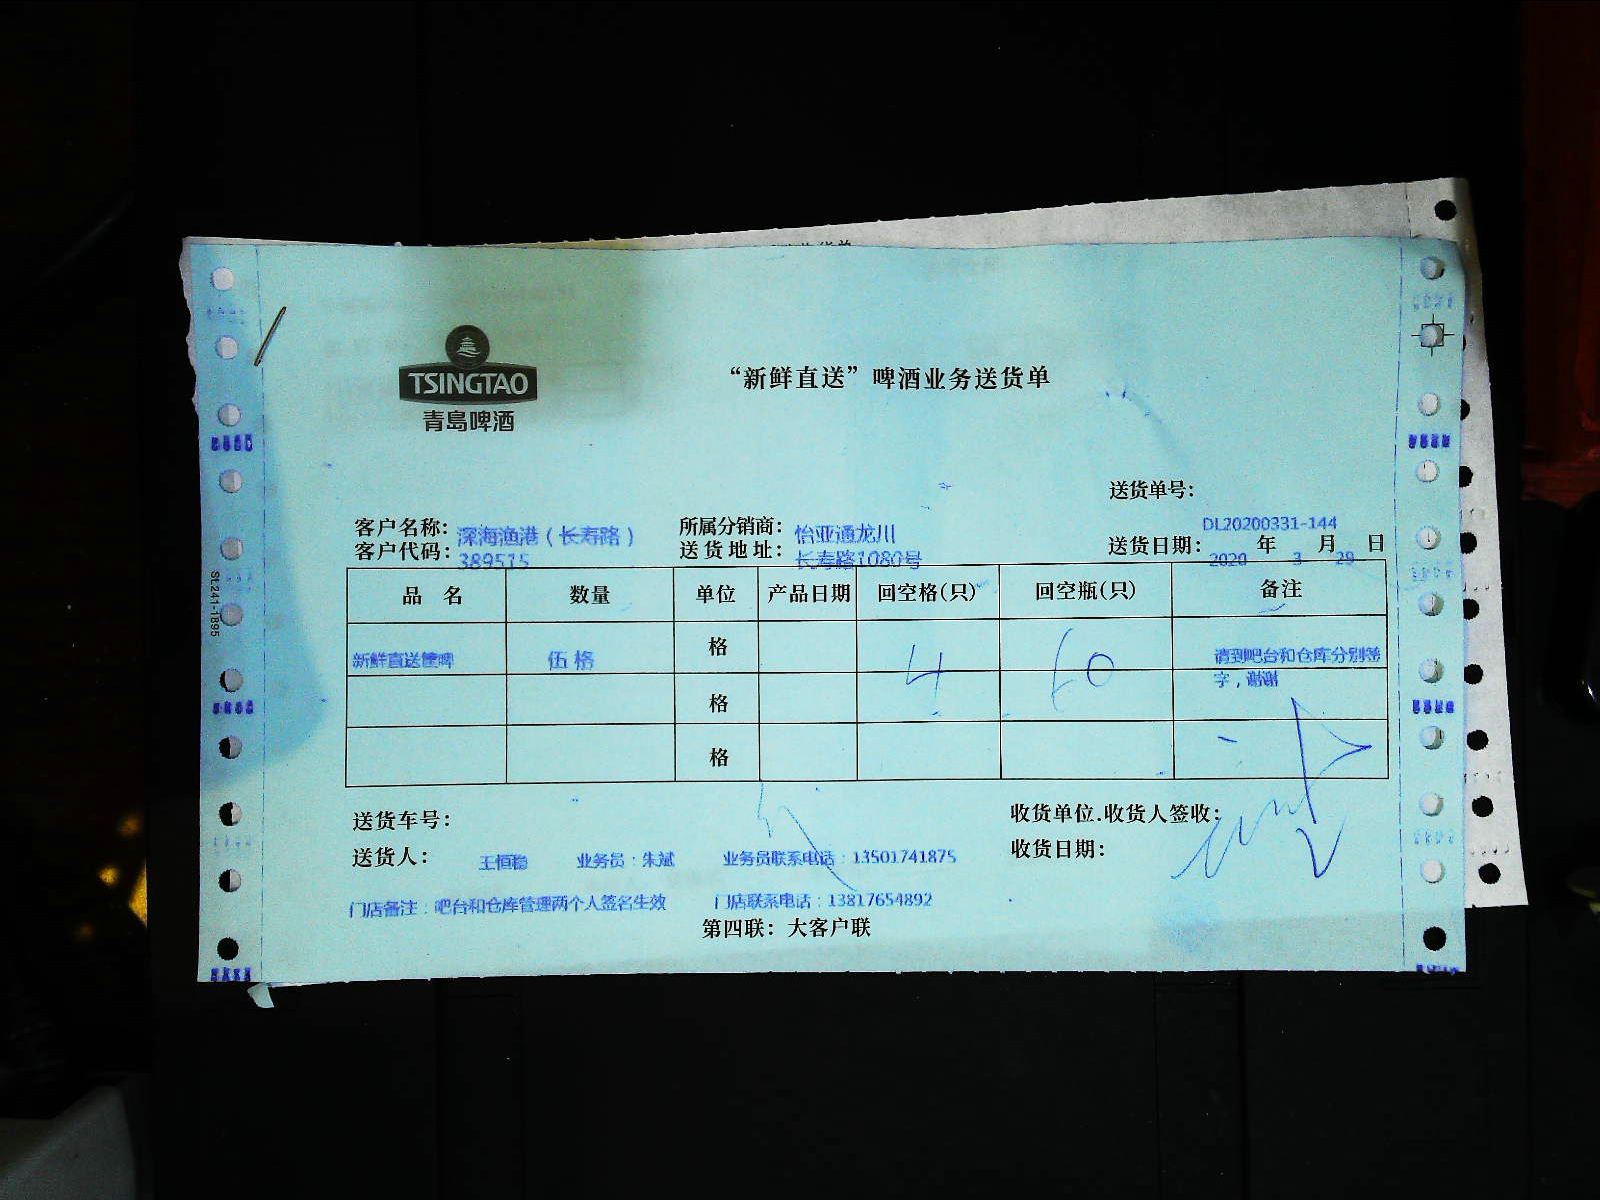 TSINGTAO
青岛啤酒
“新鲜直送”啤酒业务送货单
送货单号：
DL20200331-144
客户名称：深海渔港（长寿路） 所属分销商：怡亚通龙川
客户代码：389515 送货地址：长寿路1080号 送货日期：2020 年 3 月 29 日
品 名 数量 单位 产品日期 回空格(只) 回空瓶(只) 备注
新鲜直送筐啤 伍格 格 4 60 请到吧台和仓库分别签字，谢谢
格
格
送货车号： 收货单位.收货人签收：
送货人： 王恒稳 业务员：朱斌 业务员联系电话：13501741875 收货日期：
门店备注：吧台和仓库管理两个人签名生效 门店联系电话：13817654892
第四联：大客户联
SL241-1895